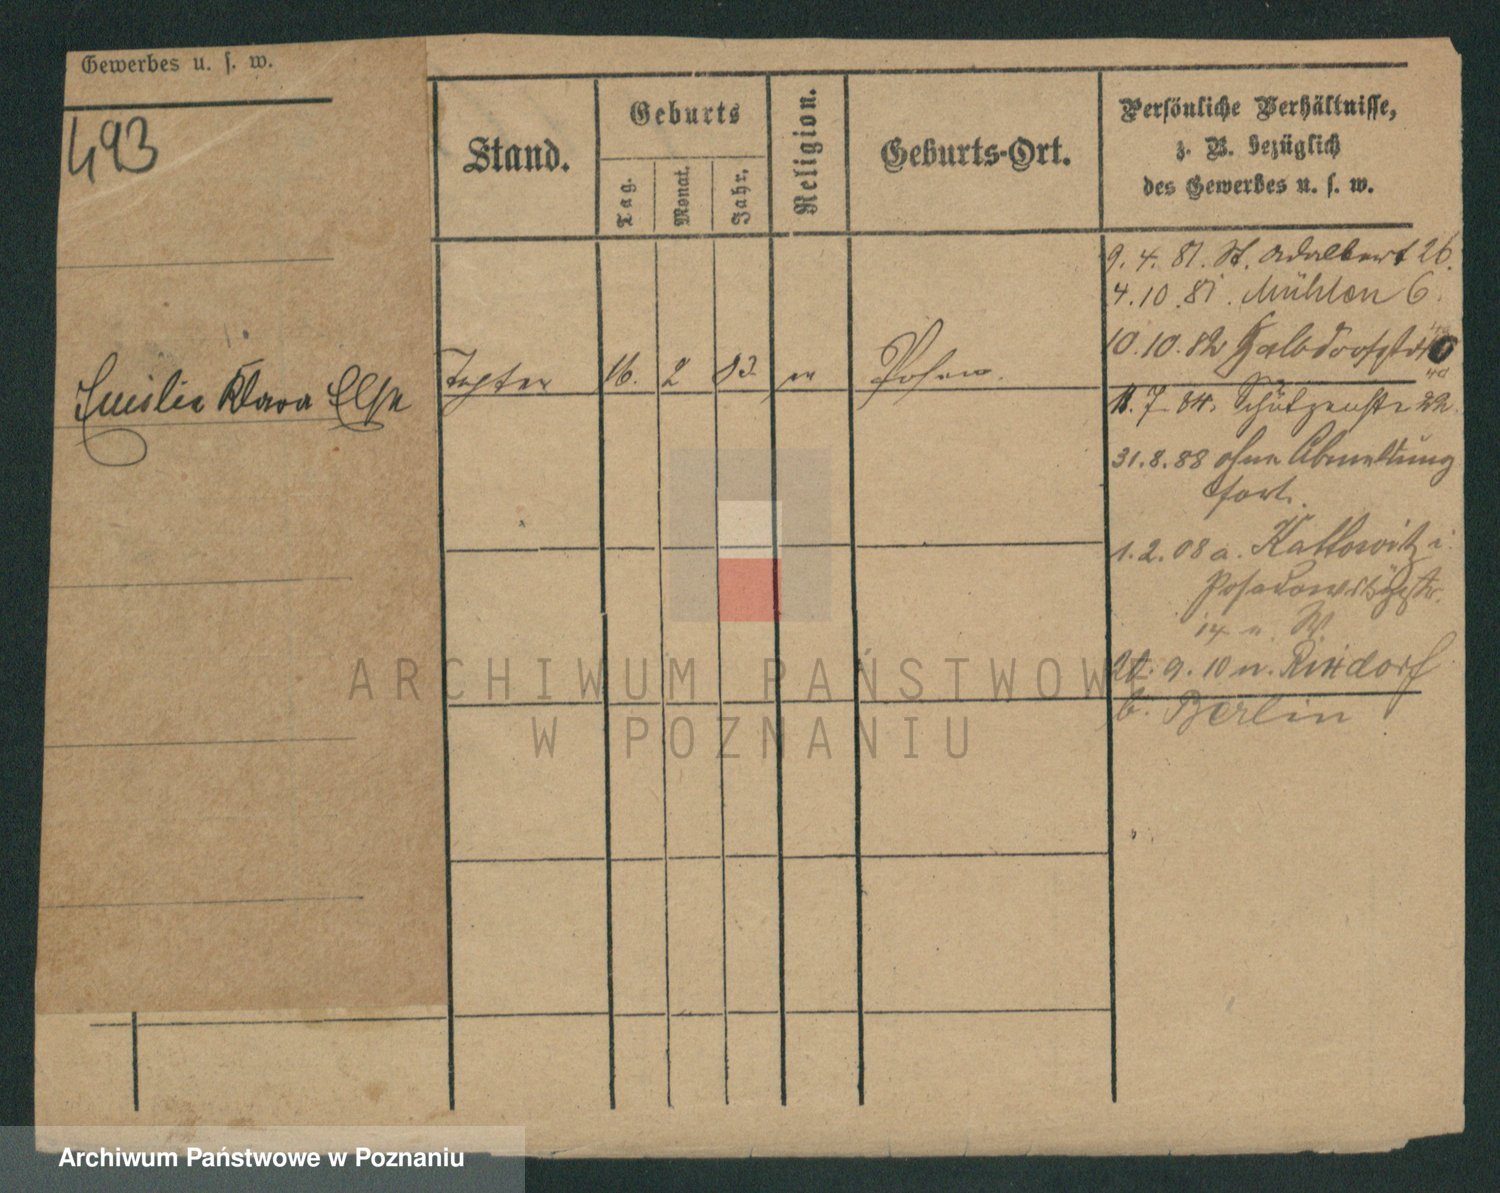 Gewerbes u. s. w.
493
Stand.
Geburts
Tag.
Monat.
Jahr.
Religion.
Geburts-Ort.
Persönliche Verhältnisse,
z. B. bezüglich
des Gewerbes u. s. w.
9. 4. 81. St. Adalbert 26.
4. 10. 81. Mühlen 6.
10. 10. 82 Halbdorfstr
Emilie Klara Else
Tochter 16. 2 83 ev Posen.
11. 7. 84. Schützenstr 22.
31. 8. 88 ohne Abmeldung
fort.
1. 2. 08 a. Kattowitz i.
Posadowskystr.
14 n. W
20. 9. 10 n. Rixdorf
b. Berlin
ARCHIWUM PAŃSTWOWE
W POZNANIU
Archiwum Państwowe w Poznaniu